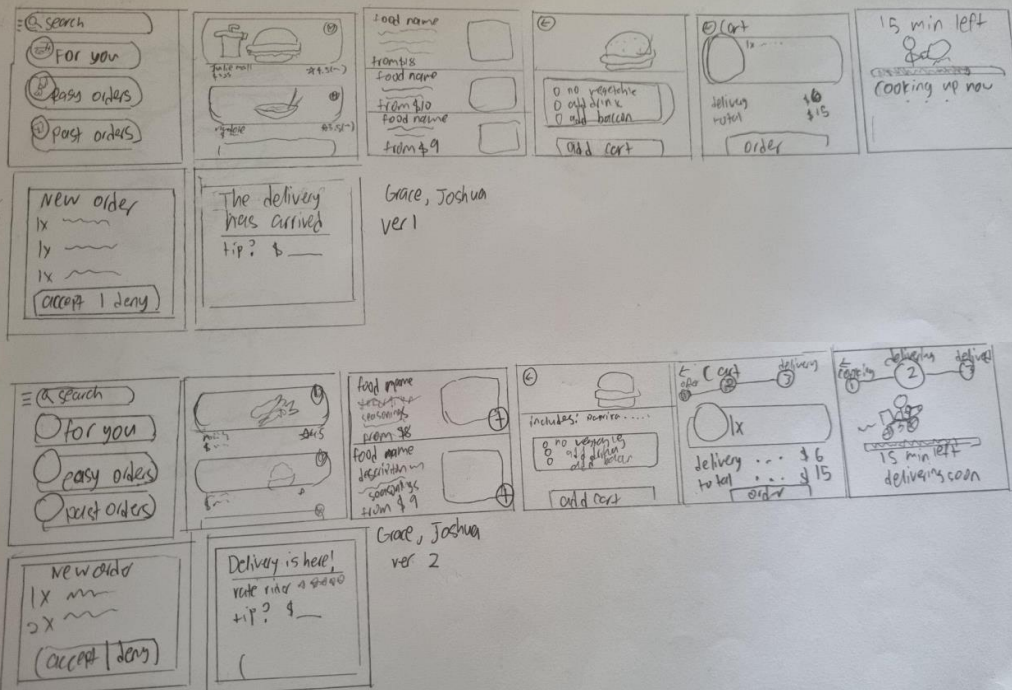 search
For you
easy orders
past orders
food name
from $18
food name
from $10
food name
from $9
no vegetable
add drink
add baccon
add cart
Cart
1x
delivery $6
total $15
order
15 min left
cooking up now
New order
1x
1x
1x
accept | deny
The delivery
has arrived
tip? $
Grace, Joshua
ver 1
search
for you
easy orders
past orders
food name
seasonings
from $8
food name
description
seasonings
from $9
includes:
no vegetables
add drinks
add cart
Cart
delivery
2
3
1x
delivery ... $6
total ... $15
order
cooking
delivering
1
2
3
15 min left
delivering soon
Grace, Joshua
ver 2
New order
1x
2x
(accept | deny)
Delivery is here!
rate rider
tip? $